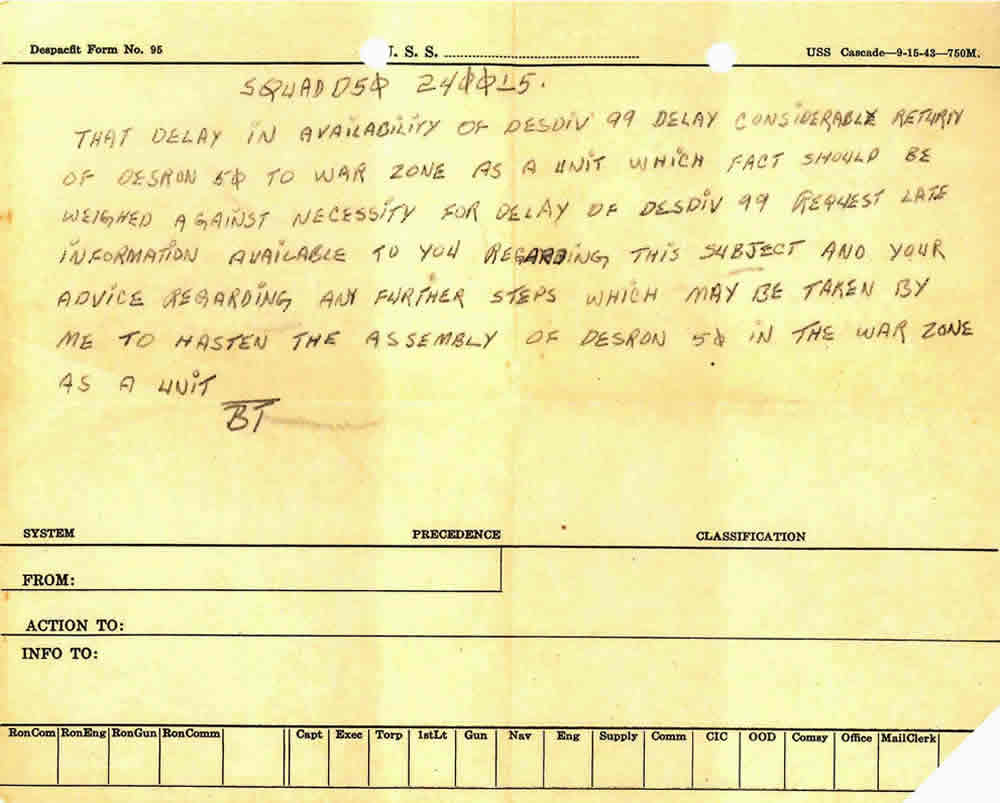 Despacfit Form No. 95 U. S. S. USS Cascade—9-15-43—750M.
SQUADD5Ø 24ØØ15.
THAT DELAY IN AVAILABILITY OF DESDIV 99 DELAY CONSIDERABLY RETURN
OF DESRON 5Ø TO WAR ZONE AS A UNIT WHICH FACT SHOULD BE
WEIGHED AGAINST NECESSITY FOR DELAY OF DESDIV 99 REQUEST LATE
INFORMATION AVAILABLE TO YOU REGARDING THIS SUBJECT AND YOUR
ADVICE REGARDING ANY FURTHER STEPS WHICH MAY BE TAKEN BY
ME TO HASTEN THE ASSEMBLY OF DESRON 5Ø IN THE WAR ZONE
AS A UNIT
BT
SYSTEM PRECEDENCE CLASSIFICATION
FROM:
ACTION TO:
INFO TO:
RonCom RonEng RonGun RonComm Capt Exec Torp 1stLt Gun Nav Eng Supply Comm CIC OOD Comsy Office MailClerk